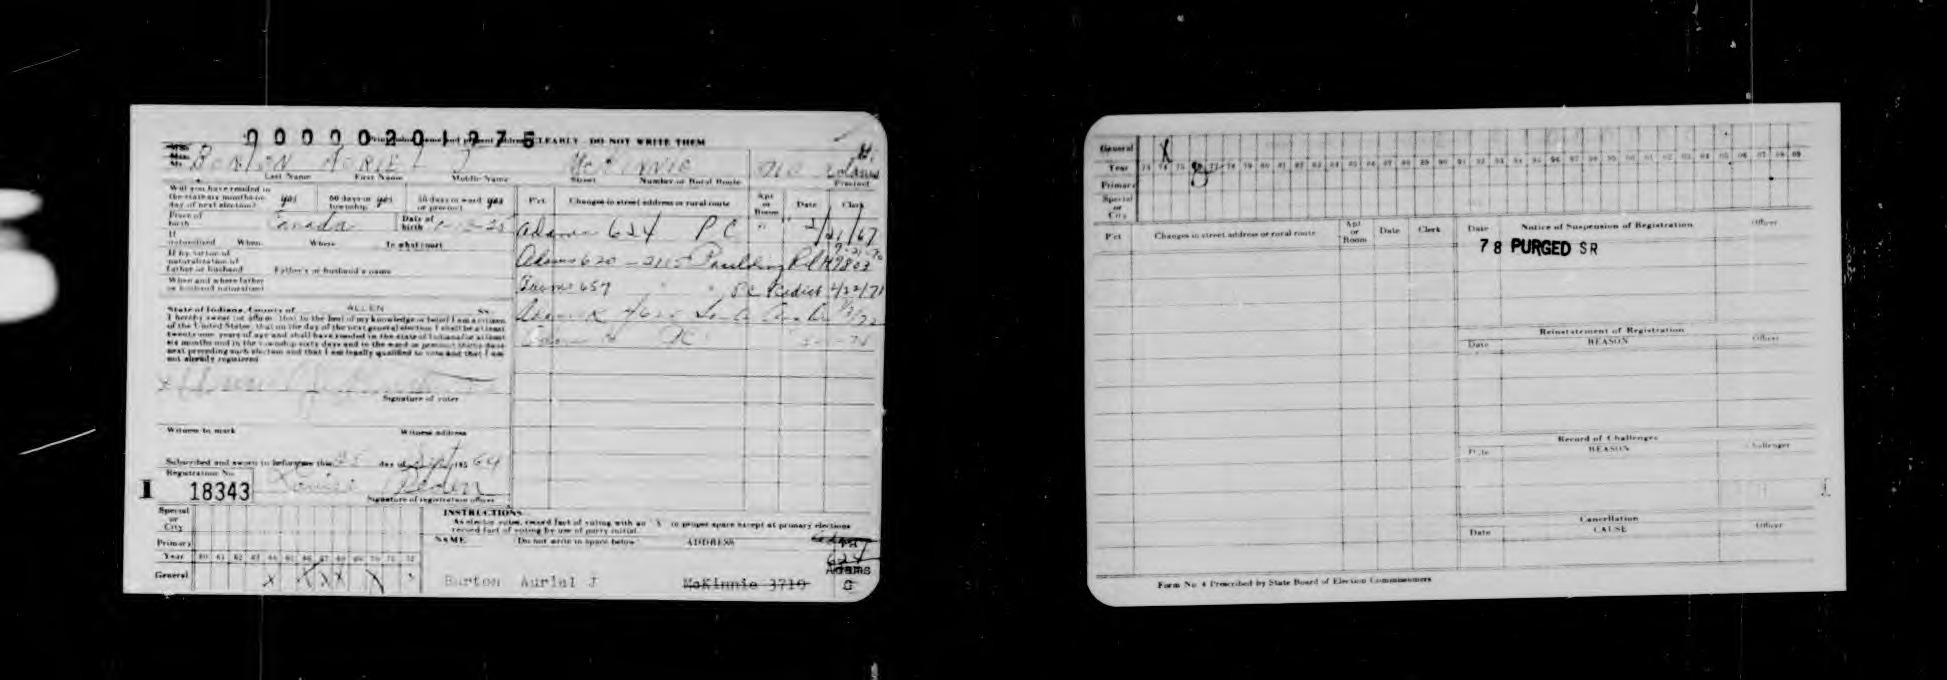 0000201275
CLEARLY - DO NOT WRITE THEM
Burton Auriel J McKinnie
Last Name First Name Middle Name Street Number or Rural Route Precinct
Will you have resided in the state six months on day of next election? yes 60 days in township yes 30 days in ward or precinct yes
Place of birth Canada Date of birth
If naturalized When Where In what court
If by virtue of naturalization of father or husband Father's or husband's name
When and where father or husband naturalized
Pct Changes in street address or rural route Apt or Room Date Clerk
Adams 624 P C " 2/21/67
Adams 620 - 2115 Paulding Rd
Adams 657 " " P C Redist 4/22/71
State of Indiana, County of ALLEN SS
I hereby swear (or affirm) that to the best of my knowledge or belief I am a citizen
of the United States, that on the day of the next general election I shall be at least
twenty-one years of age and shall have resided in the state of Indiana for at least
six months and in the township sixty days and in the ward or precinct thirty days
next preceding such election and that I am legally qualified to vote and that I am
not already registered
Signature of voter
Witness to mark Witness address
Subscribed and sworn to before me this 25 day of 1964
Registration No.
I 18343 Louise
Signature of registration officer
Special or City
Primary
Year 60 61 62 63 64 65 66 67 68 69 70 71 72
General X X X X X
INSTRUCTIONS
As elector votes, record fact of voting with an "X" in proper space except at primary elections
record fact of voting by use of party initial
NAME Do not write in space below ADDRESS
624
Burton Auriel J McKinnie 3710 Adams
General X
Year 73 74 75 77 78 79 80 81 82 83 84 85 86 87 88 89 90 91 92 93 94 95 96 97 98 99 00 01 02 03 04 05 06 07 08 09
Primary
Special or City
Pct Changes in street address or rural route Apt or Room Date Clerk
Date Notice of Suspension of Registration Officer
78 PURGED SR
Reinstatement of Registration
Date REASON Officer
Record of Challenges
Date REASON Challenger
Cancellation
Date CAUSE Officer
Form No. 4 Prescribed by State Board of Election Commissioners